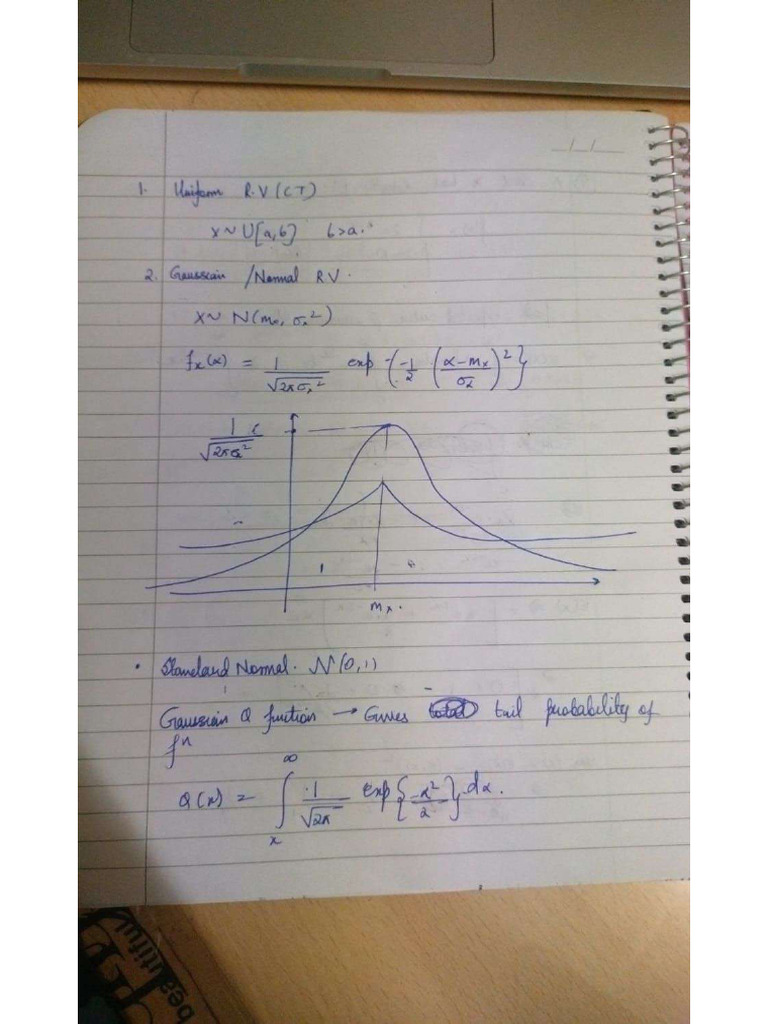 _/_/_
1. Uniform R.V (CT)
X ~ U[a,b] b>a.
2. Gaussian /Normal RV.
X ~ N(mₓ, σₓ²)
fₓ(α) = 1/√(2πσₓ²) exp {-1/2 ((α-mₓ)/σₓ)²}
1/√(2πσₓ²)
mₓ.
• Standard Normal. N(0,1)
Gaussian Q function → Gives tail probability of
fⁿ
Q(x) = ∫ₓ^∞ 1/√2π exp{-α²/2} dα.
beautiful